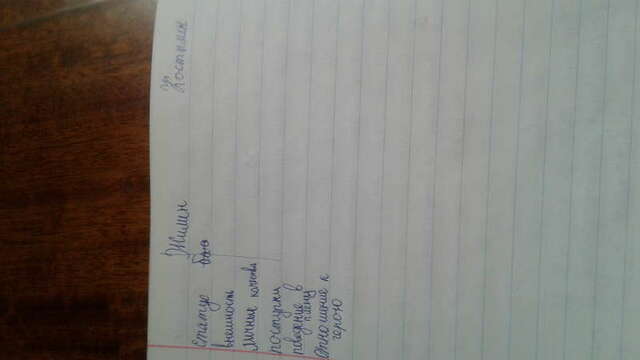 Жилин Костылин
статус
внешность
личные качества
поступки
поведение в
плену
отношение к
герою